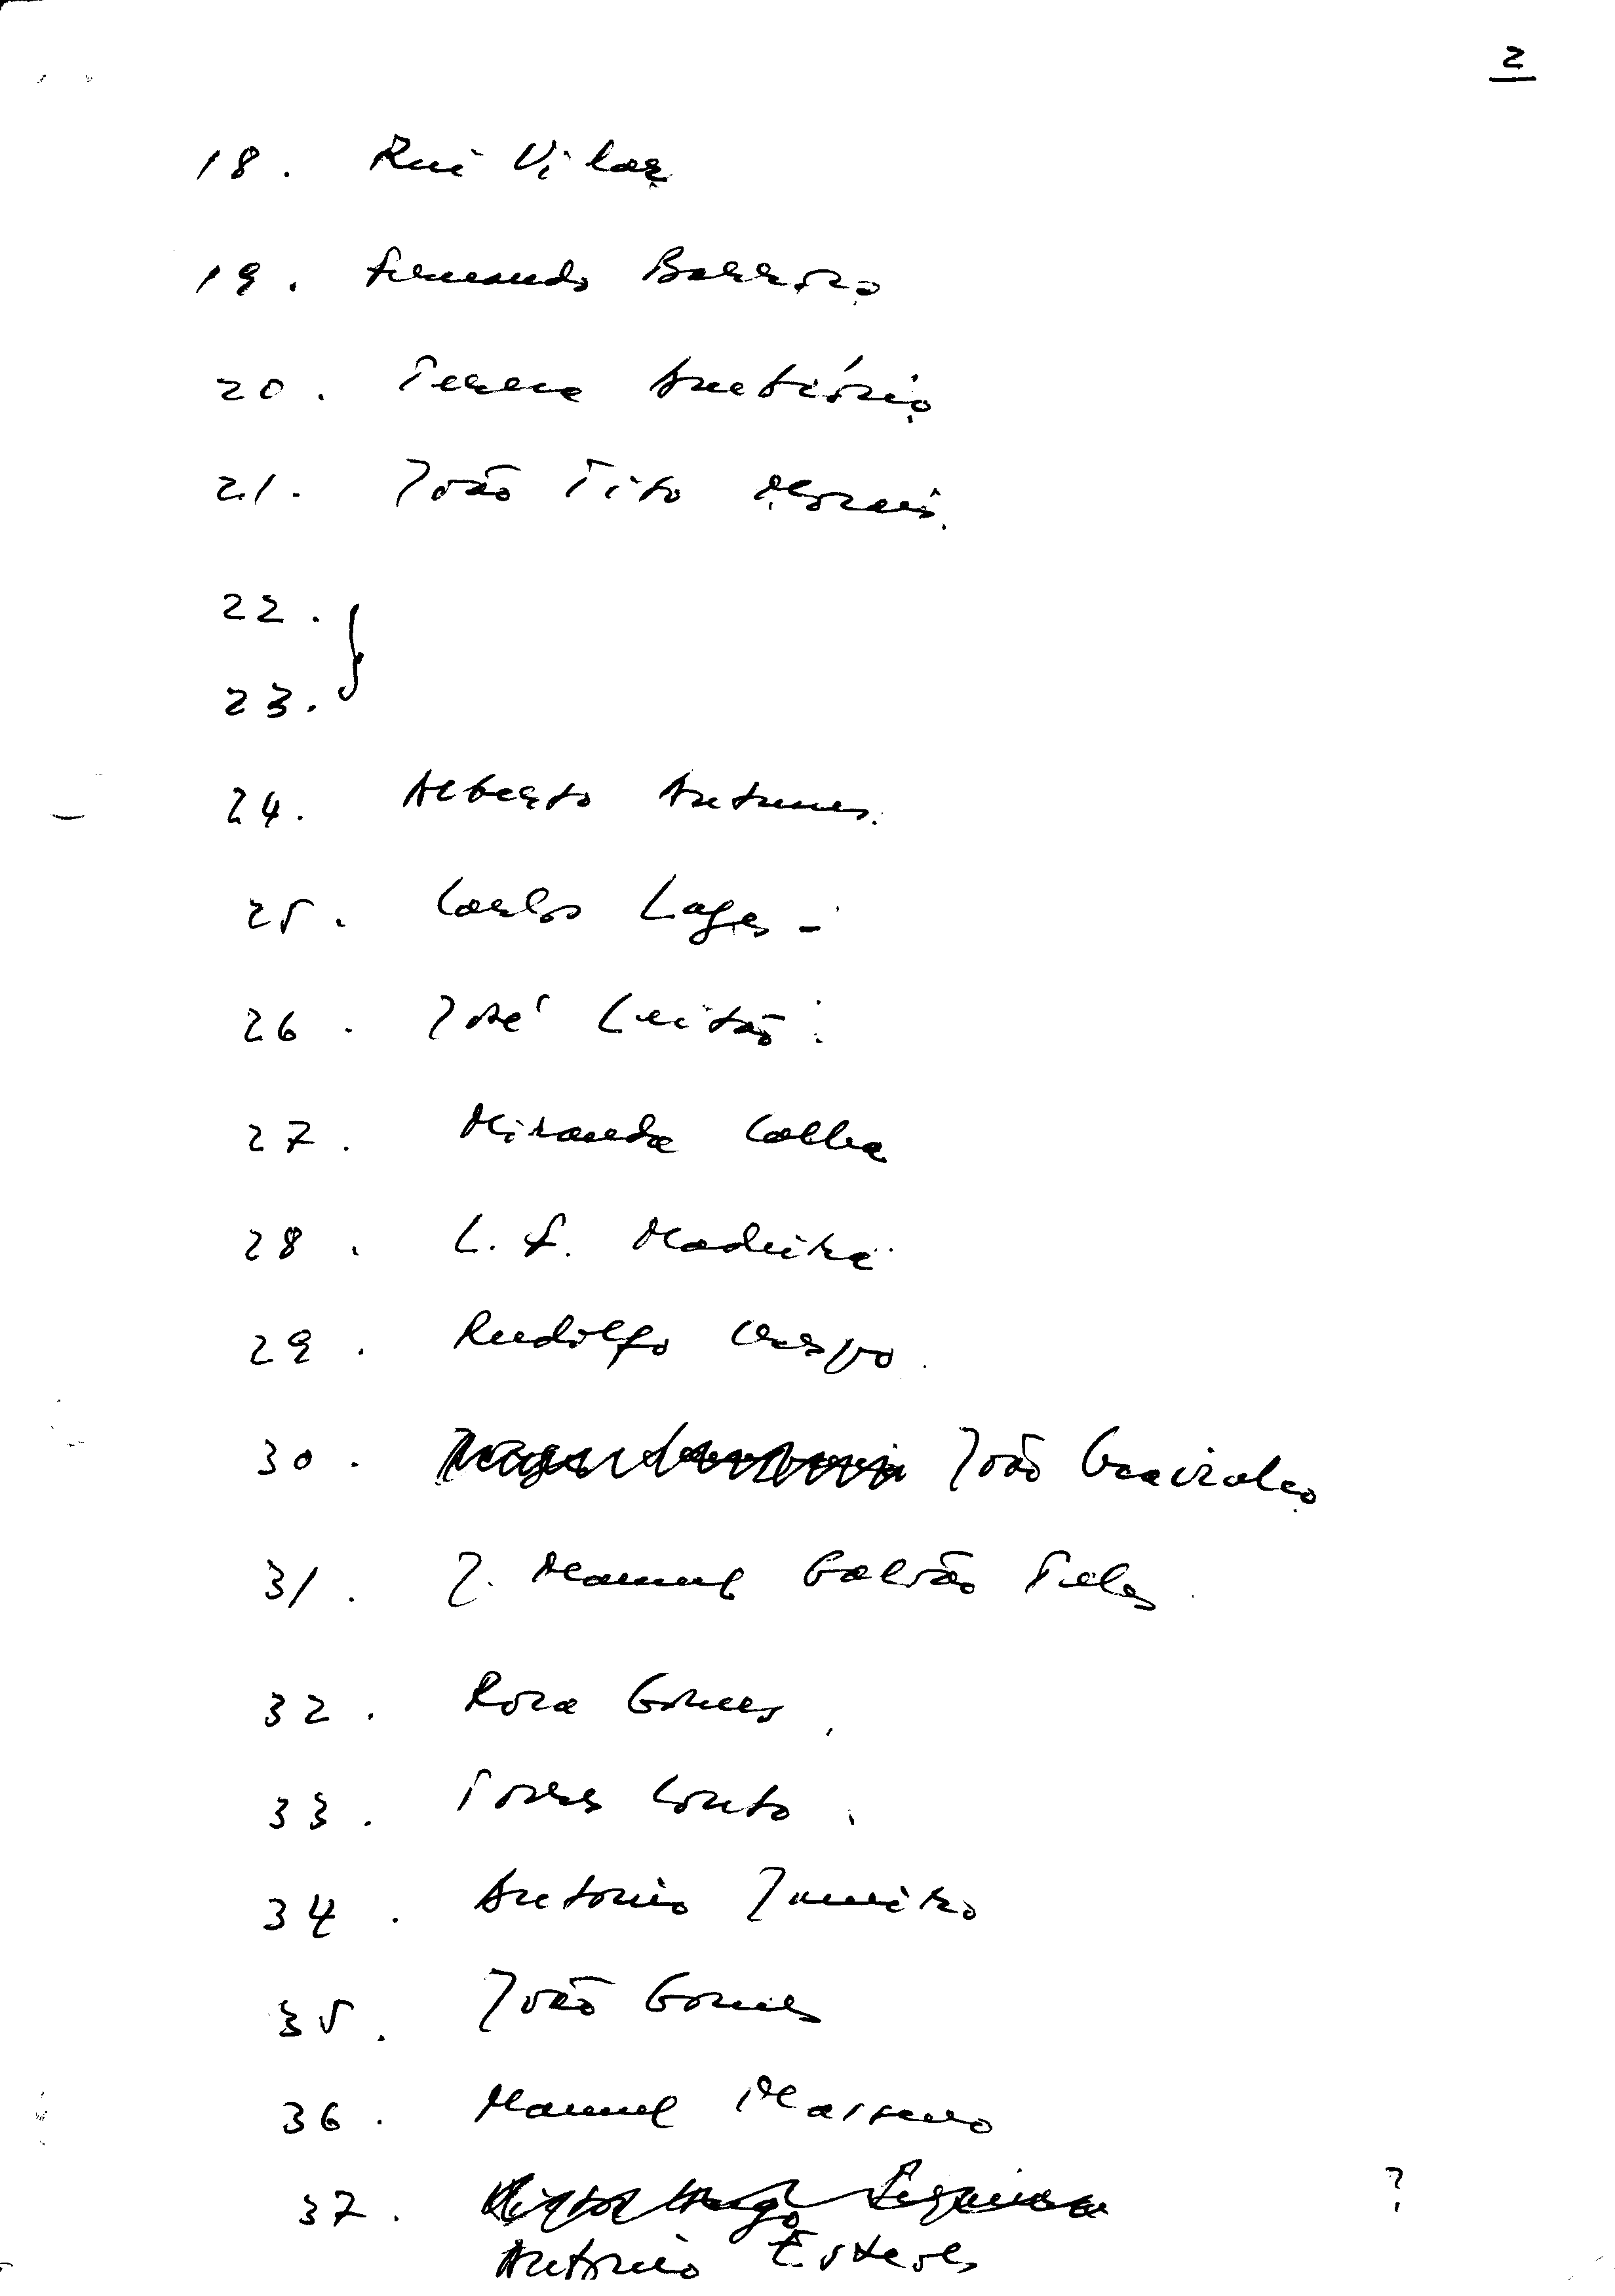 2
18. Rui Vilar
19. Fernando Barroso
20. Teresa Ambrósio
21. João Tito Morais.
22.
23.
24. Alberto Antunes.
25. Carlos Lages -
26. José Leitão.
27. Miranda Calha
28. L. F. Madeira
29. Rudolfo Crespo.
30. João
31. J. Manuel Galvão Teles.
32. Rosa Gomes.
33. Torres Couto.
34. António Janeiro
35. João Gomes
36. Manuel
37. ?
António Esteves